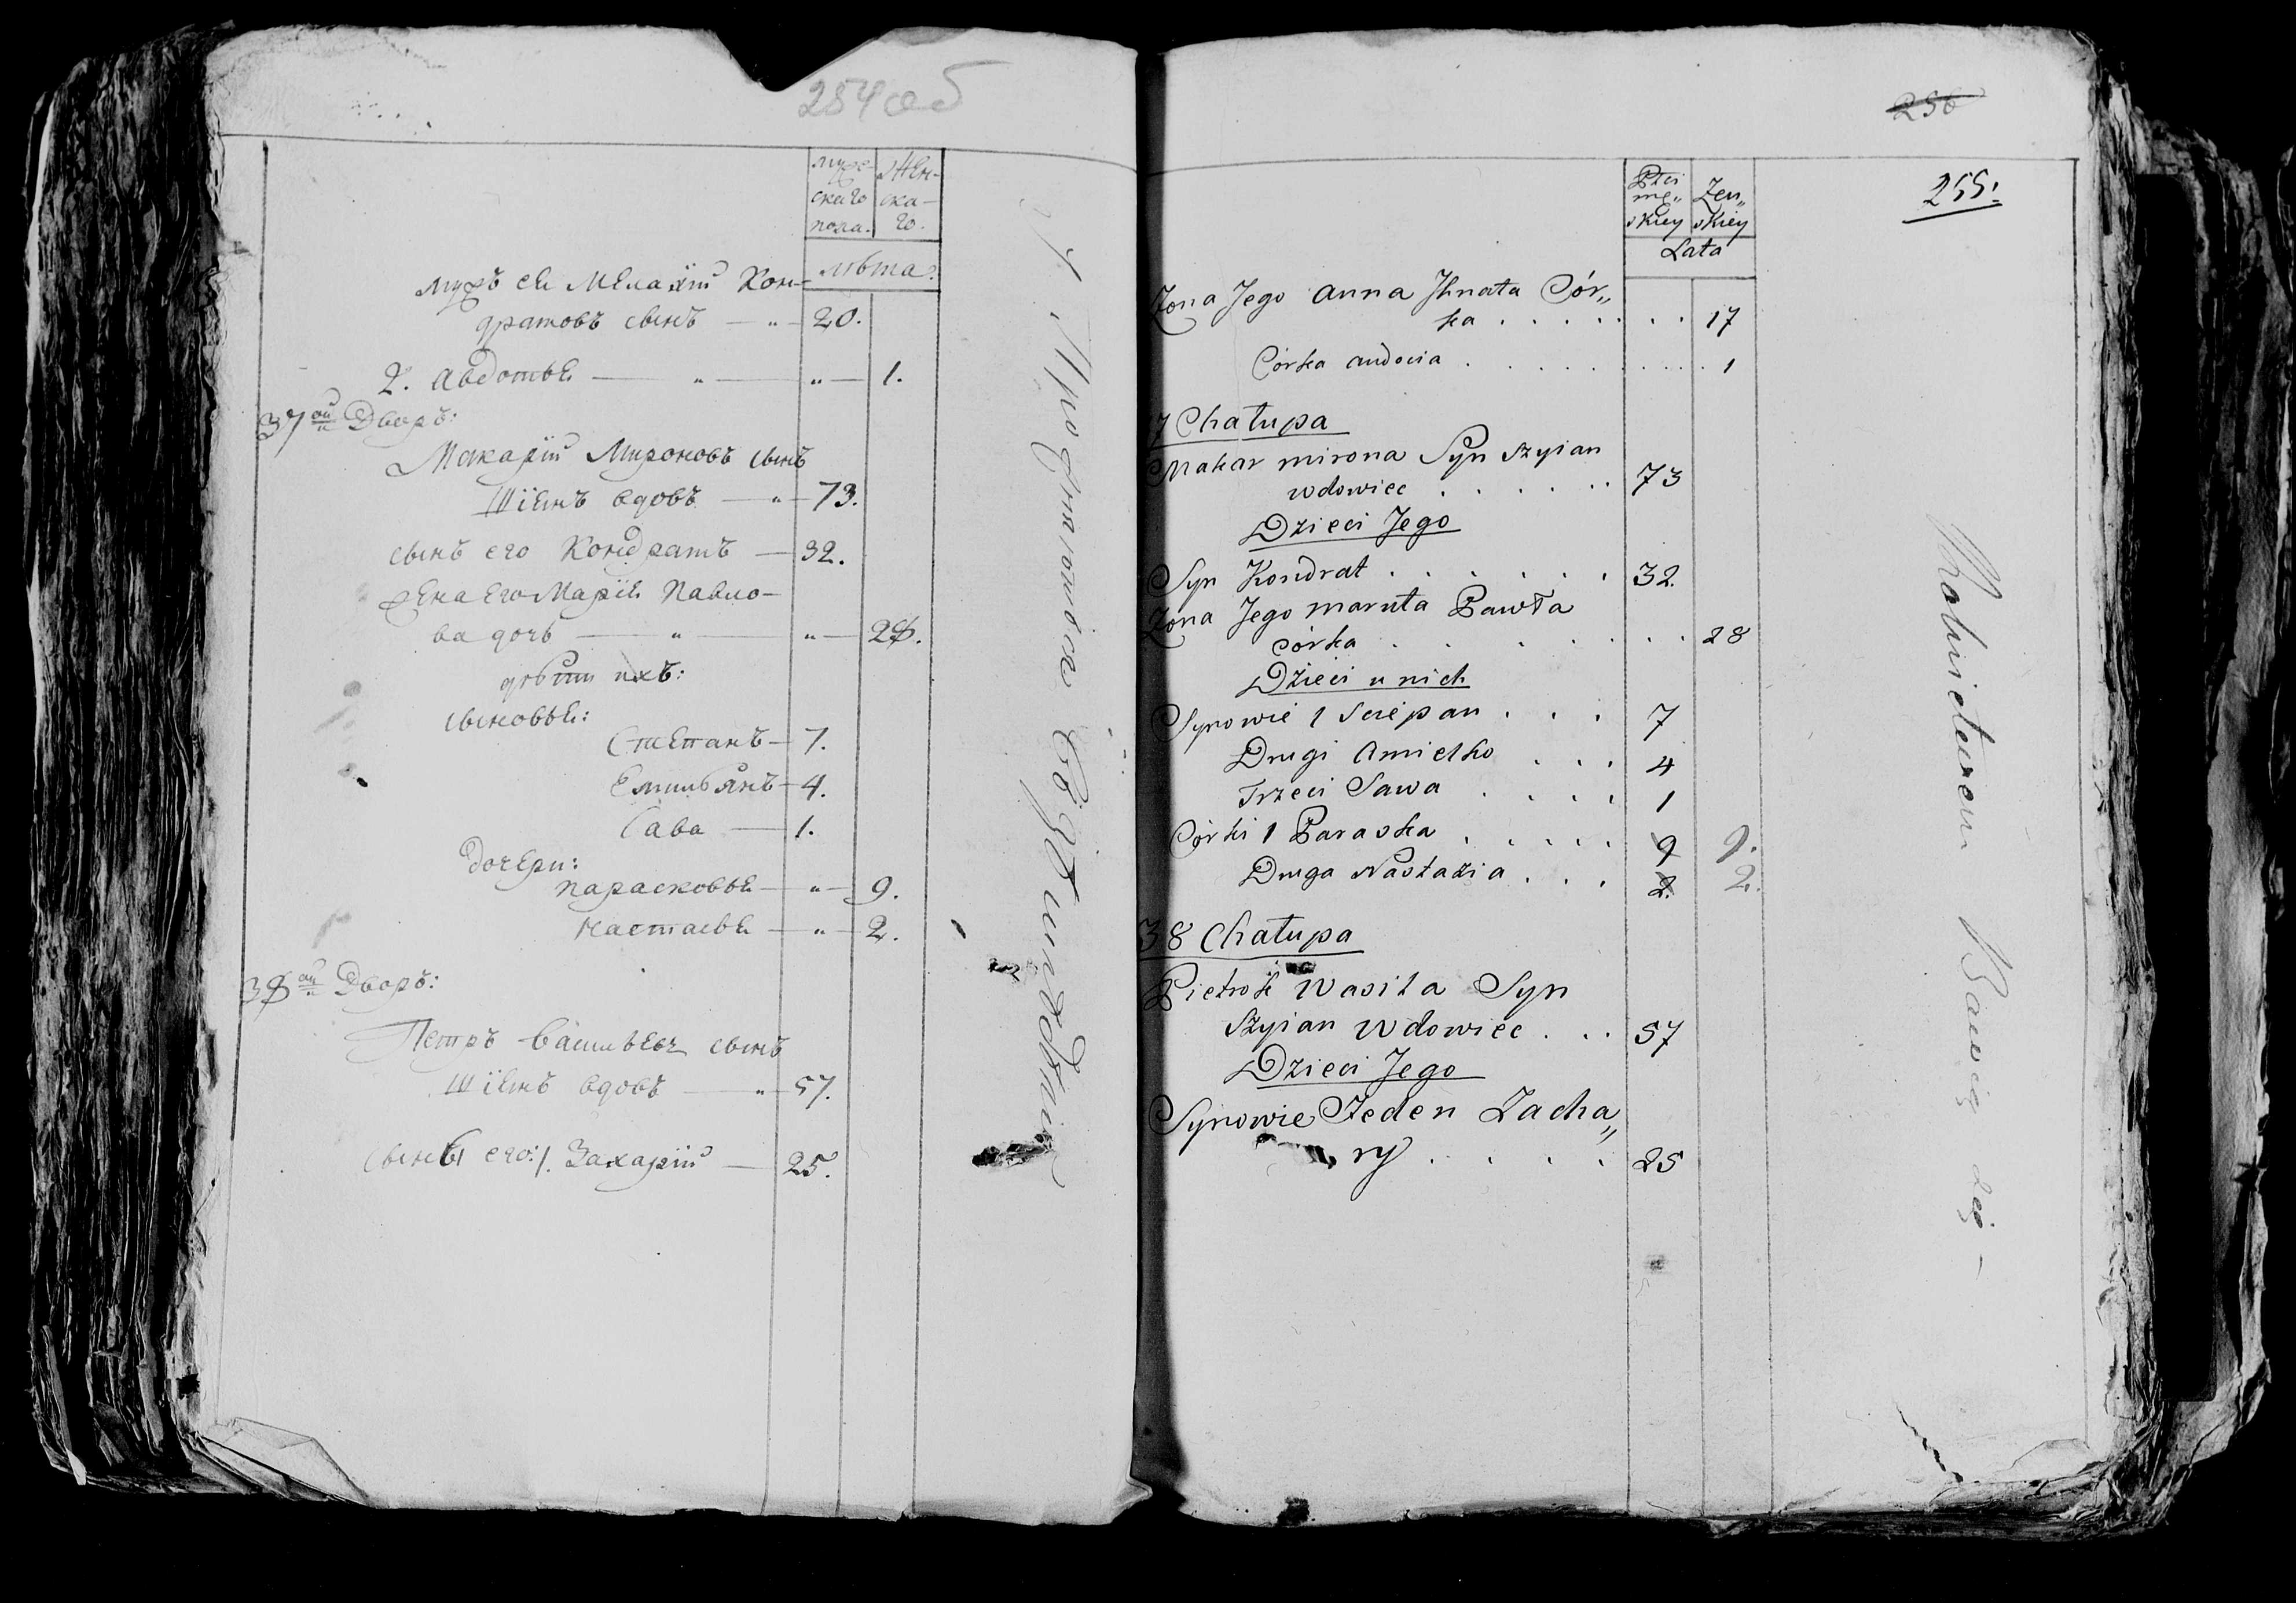 254 об
муже-
скаго
пола.
Жен-
ска-
го.
лѣта.
мужъ ея Мелахiй Кон-
дратовъ сынъ — „ — 20.
2. Авдотья — „ — „ — 1.
37ой Дворъ:
Макарiй Мироновъ сынъ
Шiянъ вдовъ — „ — 73.
сынъ его Кондратъ — 32.
жена его Марiя Павло-
ва дочь — „ — „ — 28.
дѣти ихъ:
сыновья:
Степанъ — 7.
Емильянъ — 4.
Сава — 1.
дочери:
Парасковья — „ — 9.
Настасья — „ — 2.
38ой Дворъ:
Петръ Васильевъ сынъ
Шiянъ вдовъ — „ — 57.
сыны его: 1. Захарiй — 25.
256
255.
Płci
mę„
skiey
Żen„
skiey
Lata
Zona Jego Anna Jhnata Cór„
ka . . . . . . . 17
Córka Audocia . . . . . . . 1
7 Chałupa
Makar Mirona Syn Szyian
wdowiec . . . . . . 73
Dzieci Jego
Syn Kondrat . . . . . . 32.
Zona Jego Maruta Pawła
córka . . . . . . . 28
Dzieci u nich
Synowie 1 Sciepan . . . 7
Drugi Amielko . . . 4
Trzeci Sawa . . . . 1
Córki 1 Paraska . . . . . 9 9.
Druga Nastazia . . . 2. 2.
38 Chałupa
Pietrok Wasila Syn
Szyian Wdowiec . . . 57
Dzieci Jego
Synowie Jeden Zacha„
ry . . . . 25